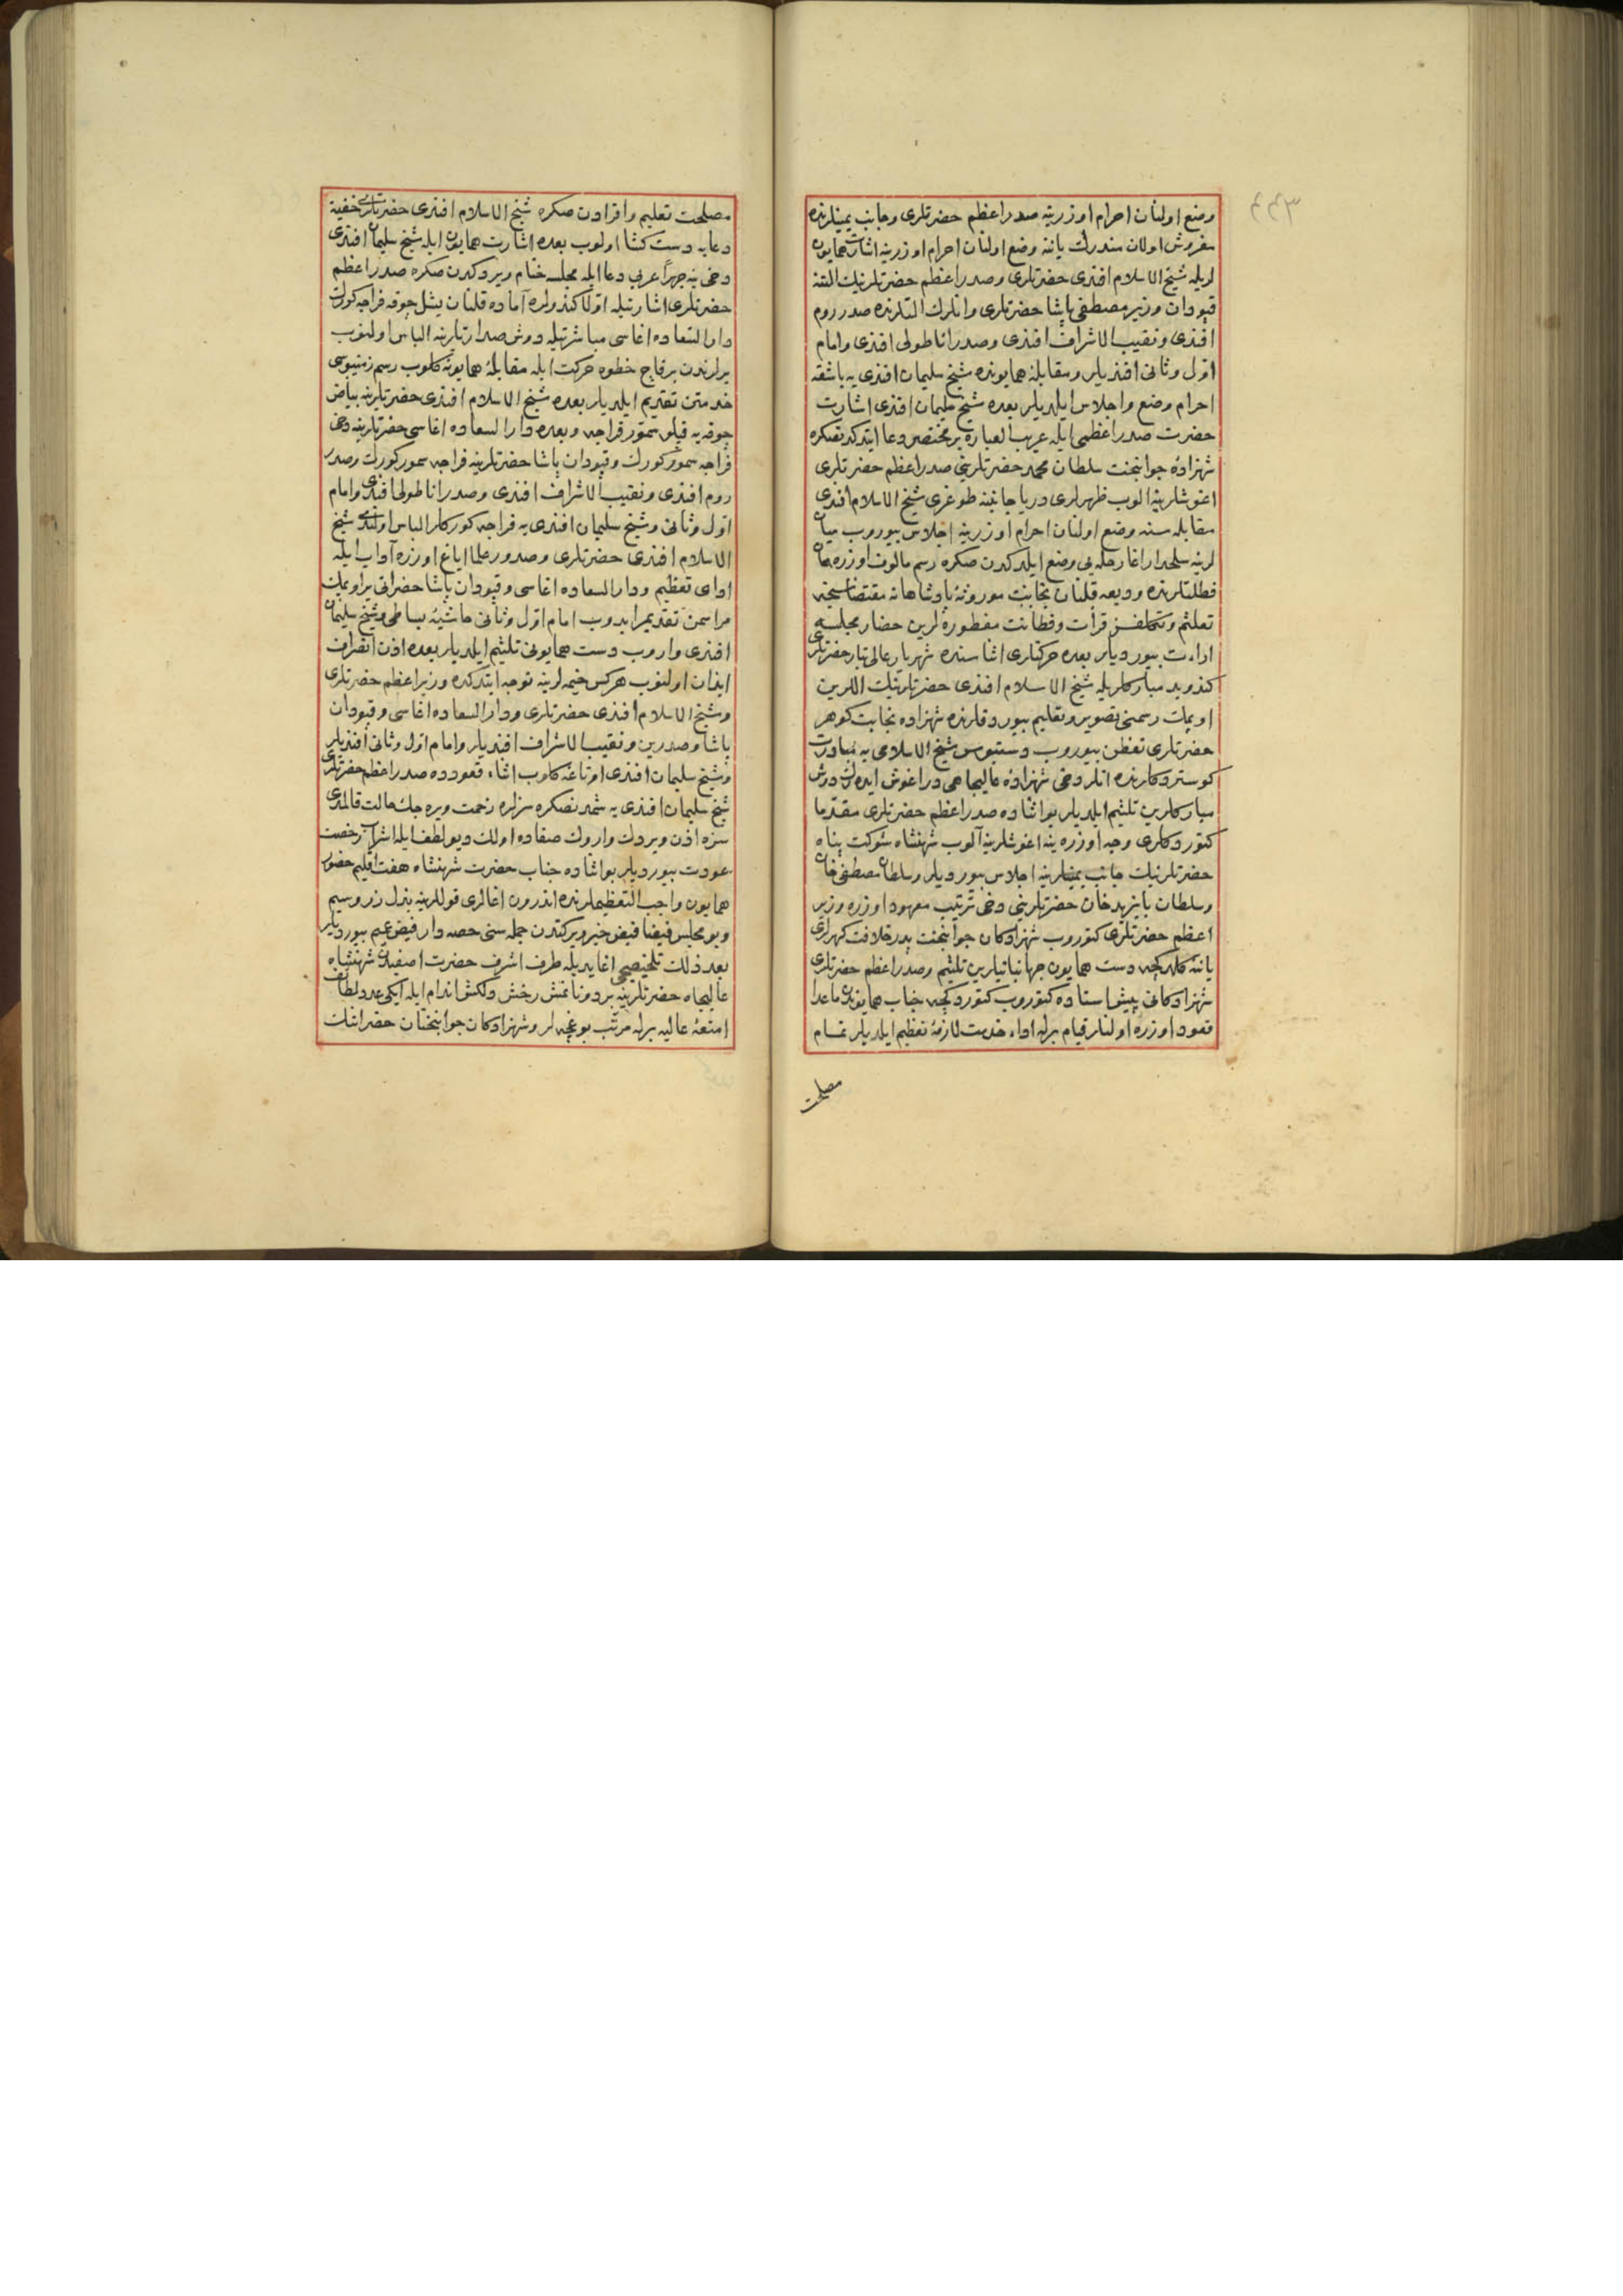 ٢٢٣
وضع اولنان احرام اوزرینه صدر اعظم حضرتلری وجانب یمینلرنده
مفروش اولان مندرك یاننه وضع اولنان احرام اوزرینه اشارت همایون
لریله شیخ الاسلام افندی حضرتلری وصدر اعظم حضرتلرینك التنه
قپودان وزیر مصطفی پاشا حضرتلری وانلرك التلرنده صدر روم
افندی ونقیب الاشراف افندی وصدر اناطولی افندی وامام
اول وثانی افندیلر ومقابلهٔ همایونده شیخ سلیمان افندی یه باشقه
احرام وضع واجلاس ایلدیلر بعده شیخ سلیمان افندی اشارت
حضرت صدر اعظمی ایله عربی العباره بر مختصر دعا ایتدكدنصكره
شهزادهٔ جوانبخت سلطان محمد حضرتلرینی صدر اعظم حضرتلری
اغوشلرینه الوب ظهرلری دریا جانبنه طوغری شیخ الاسلام افندی
مقابله سنه وضع اولنان احرام اوزرینه اجلاس بیوروب میان
لرینه سلحدار اغا رحله یی وضع ایلدكدن صكره رسم مالوف اوزره همان
فطلتلرنده ودیعه قلنان نجابت موروثهٔ پادشاهانه مقتضاسنجه
تعلثم وتكلفسز قرأت وفطانت مفطوره لرین حضار مجلسه
اراءت بیوردیلر بعده حركتلری اثناسنده شهریار عالی تبار حضرتلری
كندوید مباركلریله شیخ الاسلام افندی حضرتلرینك اللرین
اوپمك رسمنی تصویر وتعلیم بیوردقلرنده شهزاده نجابت كوهر
حضرتلری تفطن بیوروب دستبوس شیخ الاسلامی یه مبادرت
كوستردكلرنده انلر دخی شهزادهٔ عالیجاهی در اغوش ایدهرك دوش
مباركلرین تلثیم ایلدیلر بو اثناده صدر اعظم حضرتلری مقدما
كتوردكلری وجه اوزره ینه اغوشلرینه آلوب شهنشاه شوكت پناه
حضرتلرینك جانب یمینلرینه اجلاس بیوردیلر وسلطان مصطفی خان
وسلطان بایزید خان حضرتلرینی دخی ترتیب معهود اوزره وزیر
اعظم حضرتلری كتوروب شهزادكان جوانبخت پدر خلافت كهرلری
یاننه كلدكجه دست همایون جهانبانیلرین تلثیم وصدر اعظم حضرتلری
شهزادكانی پیش استاده كتوروب كتوردكجه جناب همایوندن ماعدا
قعود اوزره اولنلر قیام برله اداء خدمت لازمهٔ تعظیم ایلدیلر تمام
مصلحت
مصلحت تعلیم واقرادن صكره شیخ الاسلام افندی حضرتلری خفیة
دعایه دست كشا اولوب بعده اشارت همایون ایله شیخ سلیمان افندی
دخی ینه جهرًا عربی دعا ایله مجلسه ختام ویردكدن صكره صدر اعظم
حضرتلری اشارتیله اولا كندولره آماده قلنان یشل چوقه فراجه كورك
دار السعاده اغاسی مباشرتیله دوش صدارتلرینه الباس اولنوب
یرلرندن برقاچ خطوه حركت ایله مقابلهٔ همایونه كلوب رسم زمینبوسی
خدمتن تقدیم ایلدیلر بعده شیخ الاسلام افندی حضرتلرینه بیاض
چوقه یه قپلو سمور فراجه وبعده دار السعاده اغاسی حضرتلرینه دخی
فراجه سمور كورك وقپودان پاشا حضرتلرینه فراجه سمور كورك وصدر
روم افندی ونقیب الاشراف افندی وصدر اناطولی افندی وامام
اول وثانی وشیخ سلیمان افندی یه فراجه كوركلر الباس اولندی شیخ
الاسلام افندی حضرتلری وصدور علما ایاغ اوزره آداب ایله
ادای تعظیم ودار السعاده اغاسی وقپودان پاشا حضراتی یر اوپمك
مراسمن تقدیم ایدوب امام اول وثانی حاشیهٔ بساطی وشیخ سلیمان
افندی واروب دست همایونی تلثیم ایلدیلر بعده اذن انصراف
ایذان اولنوب هركس خیمه لرینه توجه ایتدكده وزیر اعظم حضرتلری
وشیخ الاسلام افندی حضرتلری ودار السعاده اغاسی وقپودان
پاشا وصدرین ونقیب الاشراف افندیلر وامام اول وثانی افندیلر
وشیخ سلیمان افندی اوتاغه كلوب اثناء قعودده صدر اعظم حضرتلری
شیخ سلیمان افندی یه شمدنصكره سزلره زحمت ویره جك حالت قالمدی
سزه اذن ویردك وارك صفاده اولك دیو لطف ایله اشراب رخصت
عودت بیوردیلر بو اثناده جناب حضرت شهنشاه هفت اقلیم حضور
همایون واجب التعظیملرنده اندرون اغالری قوللرینه بذل زر وسیم
وبو مجلس فیضا فیض خیر ویركتدن جمله سنی حصه دار فیض عمیم بیوردیلر
بعد ذلك تلخیصی اغا یدیله طرف اشرف حضرت اصفیدن شهنشاه
عالیجاه حضرتلرینه بر دونانمش رخش دلكش اندام ایله ایكی عدد لطائف
امتعهٔ عالیه برله مرتب بوغچه لر وشهزادكان جوانبختان حضراتنك